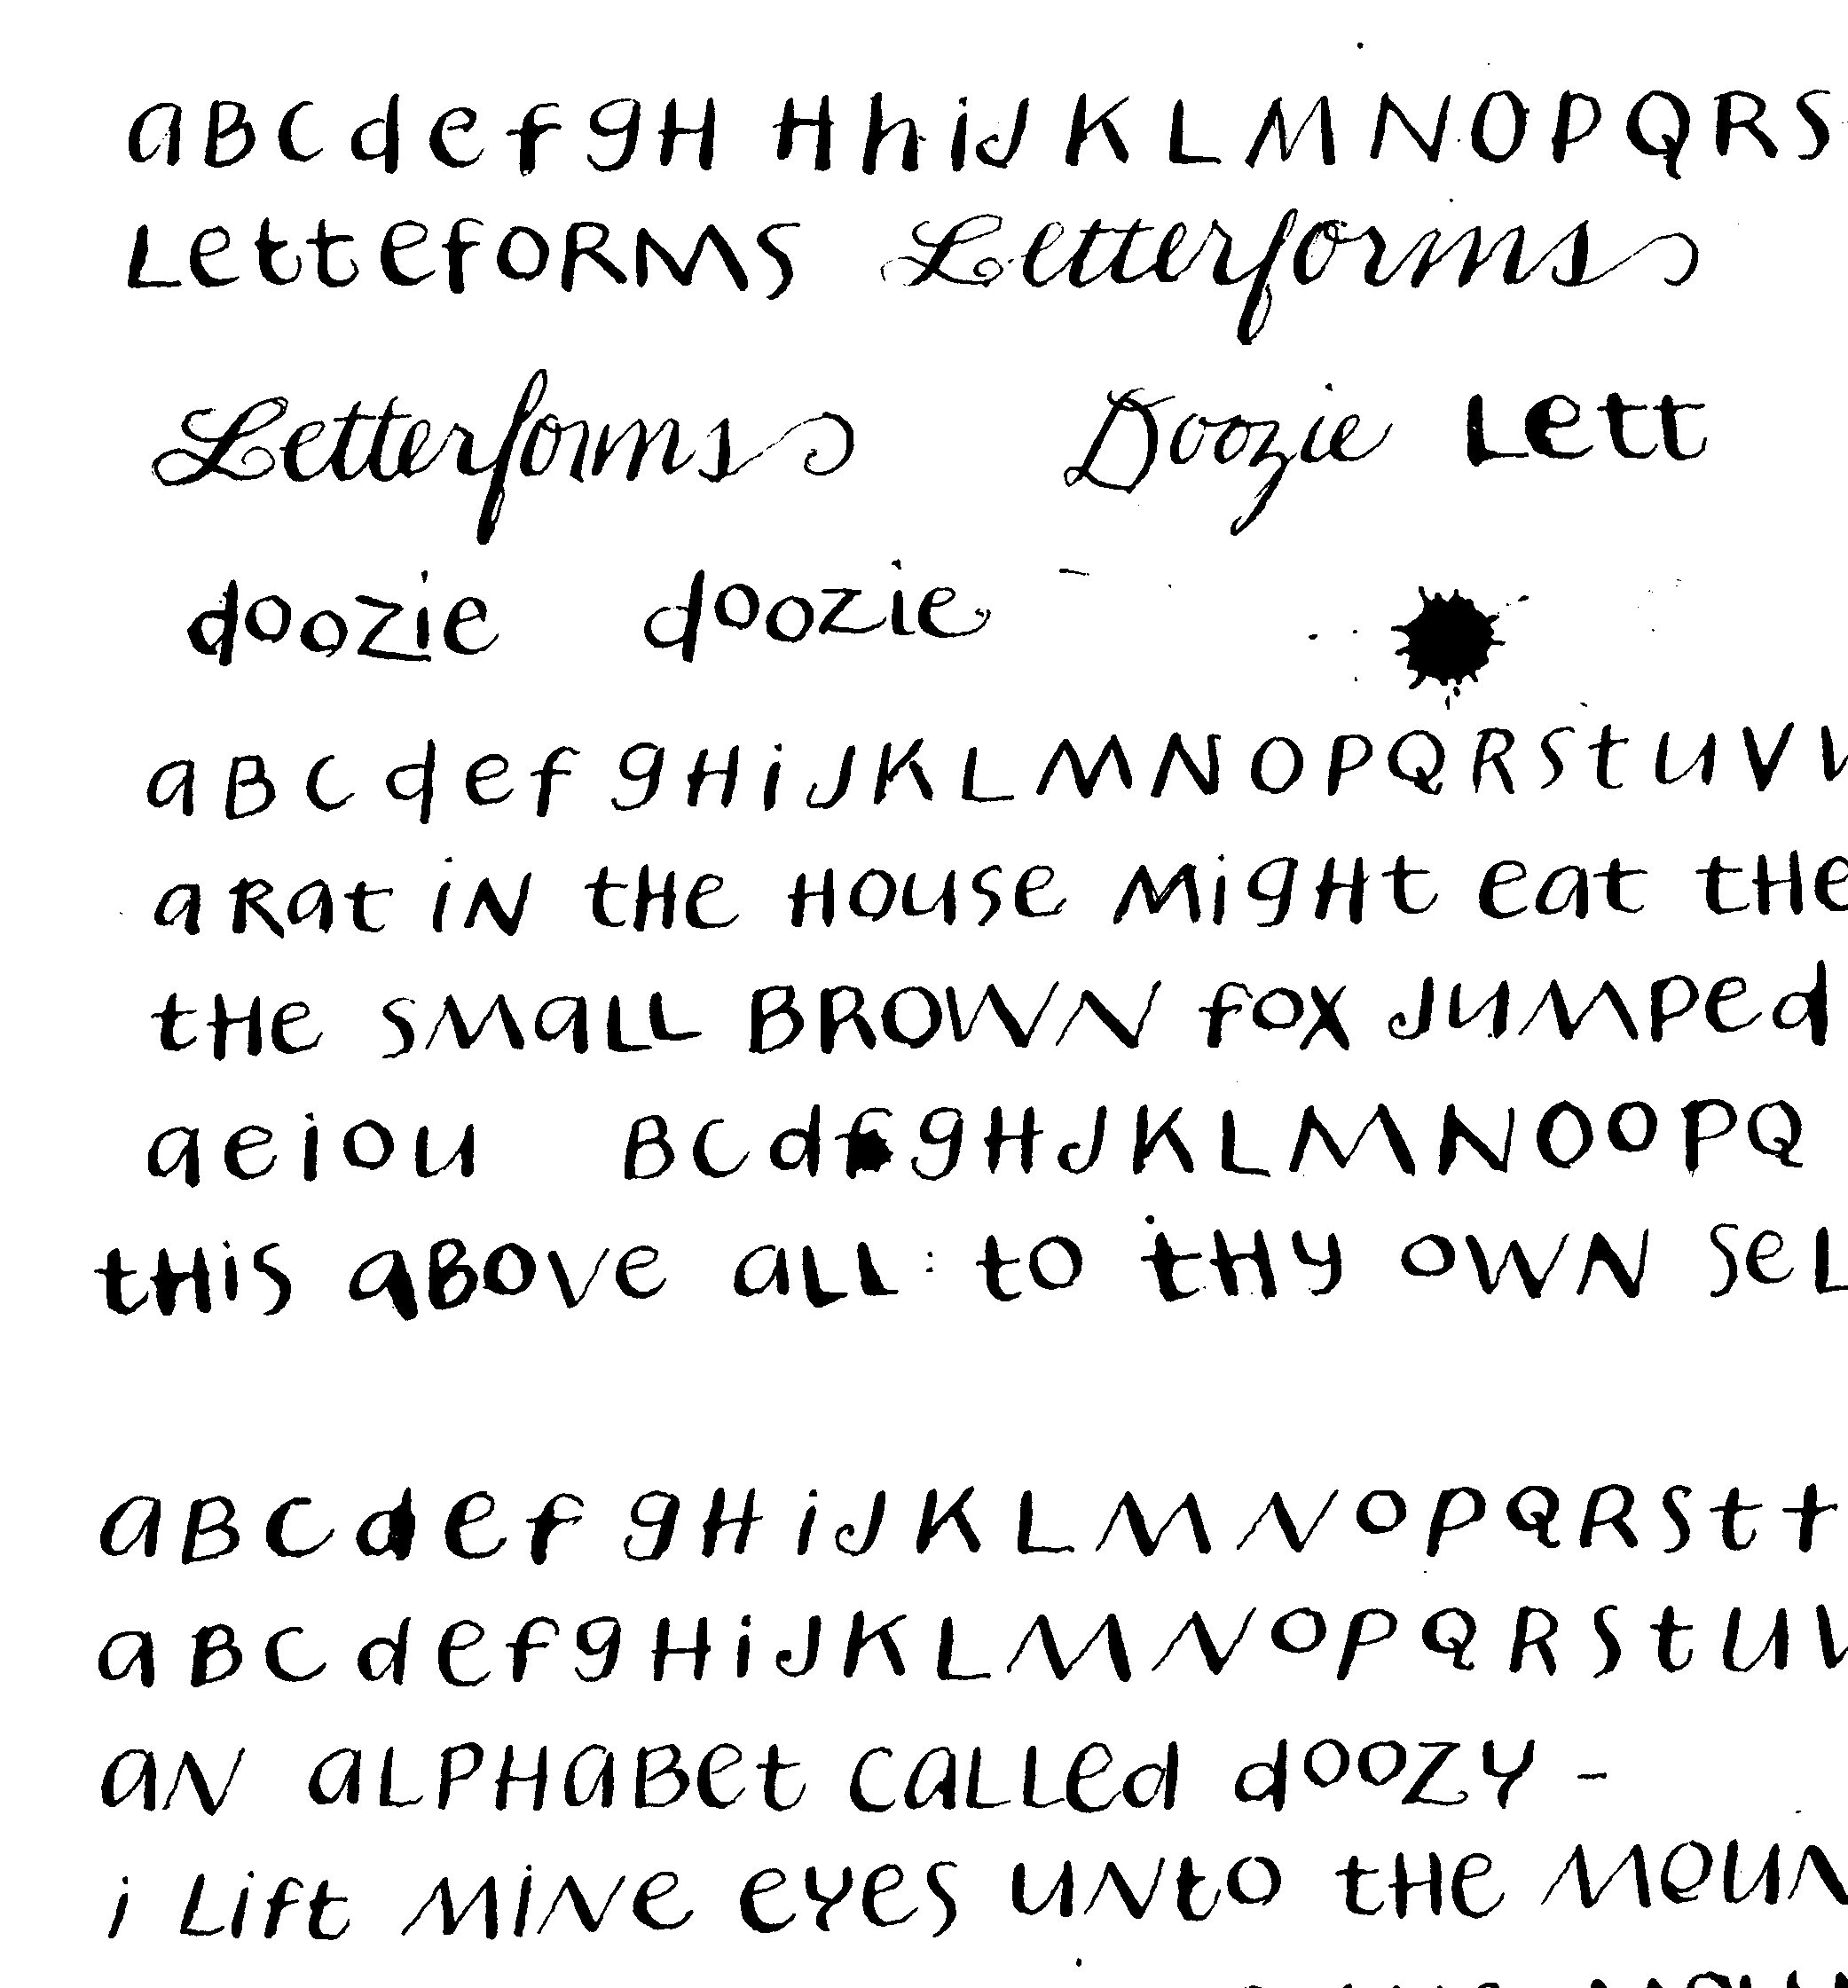 aBCdefgH HhiJKLMNOPQRS
LettefORMS Letterforms
Letterforms Doozie Lett
doozie doozie
aBCdefgHiJKLMNOPQRStUV
a Rat iN tHe HOUSe MigHt eat tHe
tHe SMaLL BROWN fOX JUMPed
aeiou BCdfgHJKLMNOOPQ
tHiS aBOVe aLL: tO tHY OWN SeL
aBCdefgHiJKLMNOPQRStt
aBCdefgHiJKLMNOPQRStU
aN aLPHaBet CaLLed dOOZY -
i Lift MiNe eYeS UNtO tHe MOUN